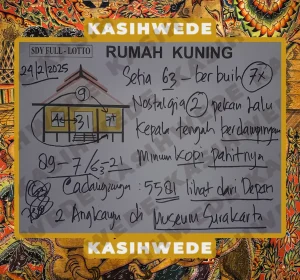 KASIHWEDE
SDY FULL - LOTTO
RUMAH KUNING
24/2/2025
Setia 63 - berbuih 7x
9
Nostalgia 2 pekan lalu
31
Kepala tengah berdampingan
89 - 7/63 - 21
Minum kopi pahitnya
Cadangannya : 5581 lihat dari Depan
2 Angkanya di Museum Surakarta
KASIHWEDE